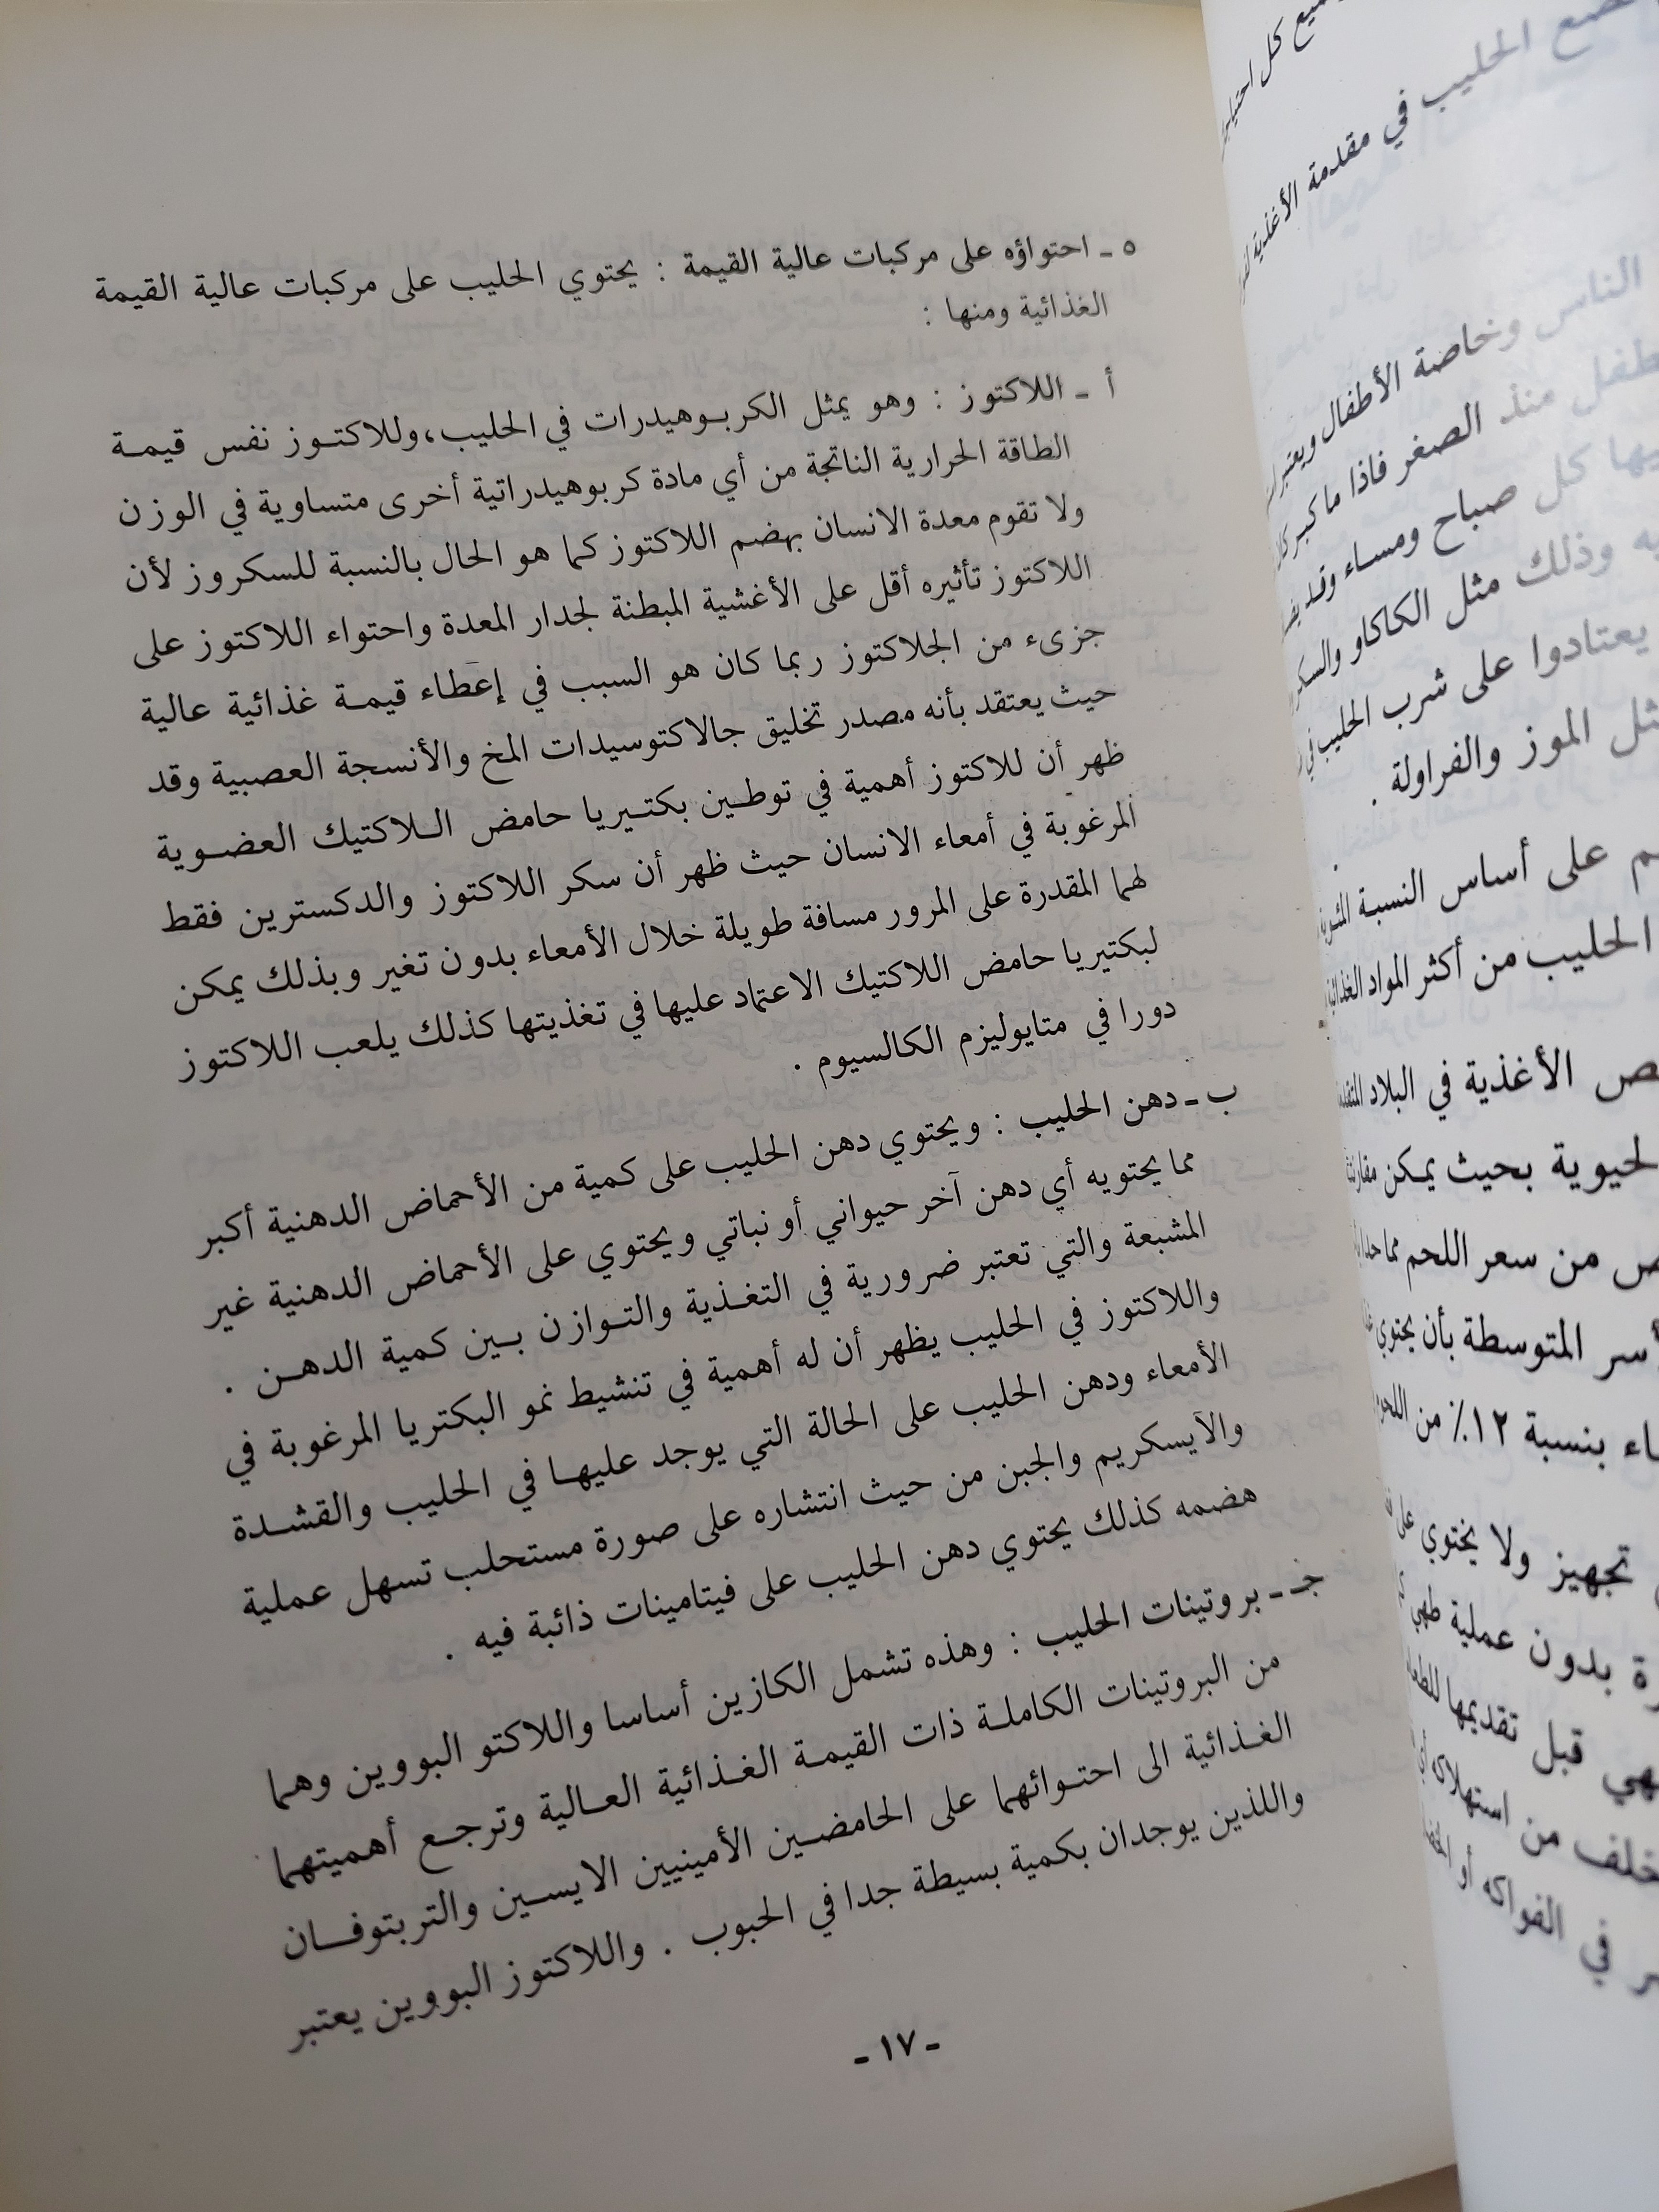 ٥ ـ احتواؤه على مركبات عالية القيمة : يحتوي الحليب على مركبات عالية القيمة
الغذائية ومنها :
أ ـ اللاكتوز : وهو يمثل الكربوهيدرات في الحليب، وللاكتوز نفس قيمة
الطاقة الحرارية الناتجة من أي مادة كربوهيدراتية أخرى متساوية في الوزن
ولا تقوم معدة الانسان بهضم اللاكتوز كما هو الحال بالنسبة للسكروز لأن
اللاكتوز تأثيره أقل على الأغشية المبطنة لجدار المعدة واحتواء اللاكتوز على
جزىء من الجلاكتوز ربما كان هو السبب في إعطاء قيمة غذائية عالية
حيث يعتقد بأنه مصدر تخليق جالاكتوسيدات المخ والأنسجة العصبية وقد
ظهر أن للاكتوز أهمية في توطين بكتيريا حامض اللاكتيك العضوية
المرغوبة في أمعاء الانسان حيث ظهر أن سكر اللاكتوز والدكسترين فقط
لهما المقدرة على المرور مسافة طويلة خلال الأمعاء بدون تغير وبذلك يمكن
لبكتيريا حامض اللاكتيك الاعتماد عليها في تغذيتها كذلك يلعب اللاكتوز
دورا في متايوليزم الكالسيوم .
ب ـ دهن الحليب : ويحتوي دهن الحليب على كمية من الأحماض الدهنية أكبر
مما يحتويه أي دهن آخر حيواني أو نباتي ويحتوي على الأحماض الدهنية غير
المشبعة والتي تعتبر ضرورية في التغذية والتوازن بين كمية الدهن .
واللاكتوز في الحليب يظهر أن له أهمية في تنشيط نمو البكتريا المرغوبة في
الأمعاء ودهن الحليب على الحالة التي يوجد عليها في الحليب والقشدة
والآيسكريم والجبن من حيث انتشاره على صورة مستحلب تسهل عملية
هضمه كذلك يحتوي دهن الحليب على فيتامينات ذائبة فيه .
جـ ـ بروتينات الحليب : وهذه تشمل الكازين أساسا واللاكتو البووين وهما
من البروتينات الكاملة ذات القيمة الغذائية العالية وترجع أهميتهما
الغذائية الى احتوائهما على الحامضين الأمينيين الايسين والتربتوفان
واللذين يوجدان بكمية بسيطة جدا في الحبوب . واللاكتوز البووين يعتبر
ـ ١٧ ـ
كل
الحليب في مقدمة الأغذية
الناس وخاصة الأطفال
منذ الصغر فاذا ما كبر
كل صباح ومساء
وذلك مثل الكاكاو
يعتادوا على شرب الحليب
الموز والفراولة .
على أساس النسبة
الحليب من أكثر المواد
الأغذية في البلاد
بحيث يمكن
من سعر اللحم
المتوسطة بأن يحتوي
بنسبة ١٢٪ من
تجهيز ولا يحتوي على
بدون عملية طهي
قبل تقديمها
من استهلاك
في الفواكه أو